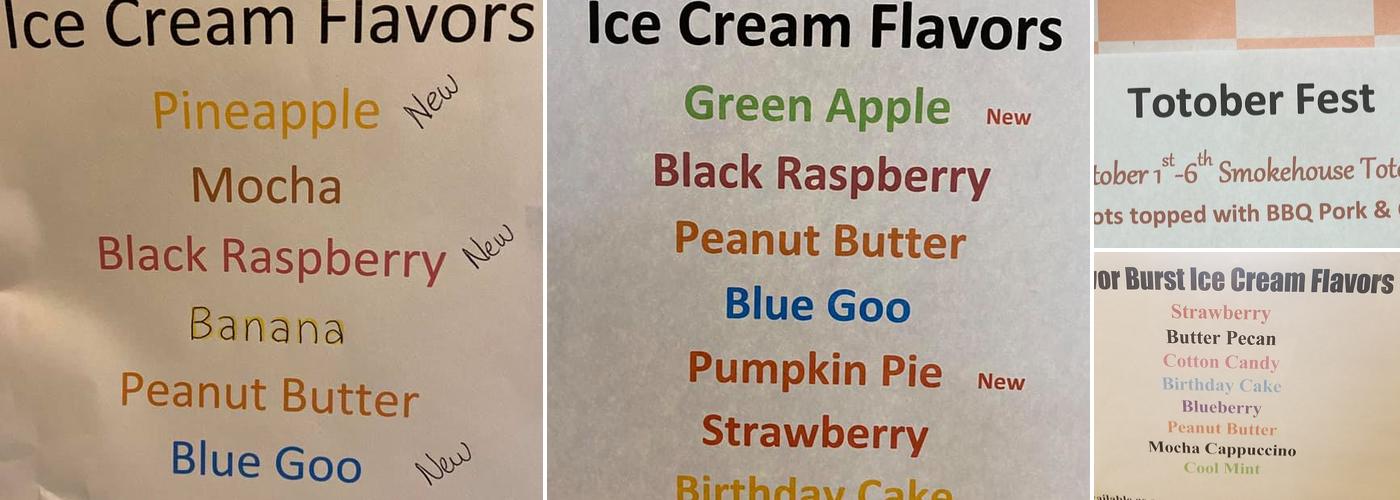 Ice Cream Flavors
Pineapple New
Mocha
Black Raspberry New
Banana
Peanut Butter
Blue Goo New
Ice Cream Flavors
Green Apple New
Black Raspberry
Peanut Butter
Blue Goo
Pumpkin Pie New
Strawberry
Birthday Cake
Totober Fest
tober 1st-6th Smokehouse Tot
ots topped with BBQ Pork &
vor Burst Ice Cream Flavors
Strawberry
Butter Pecan
Cotton Candy
Birthday Cake
Blueberry
Peanut Butter
Mocha Cappuccino
Cool Mint